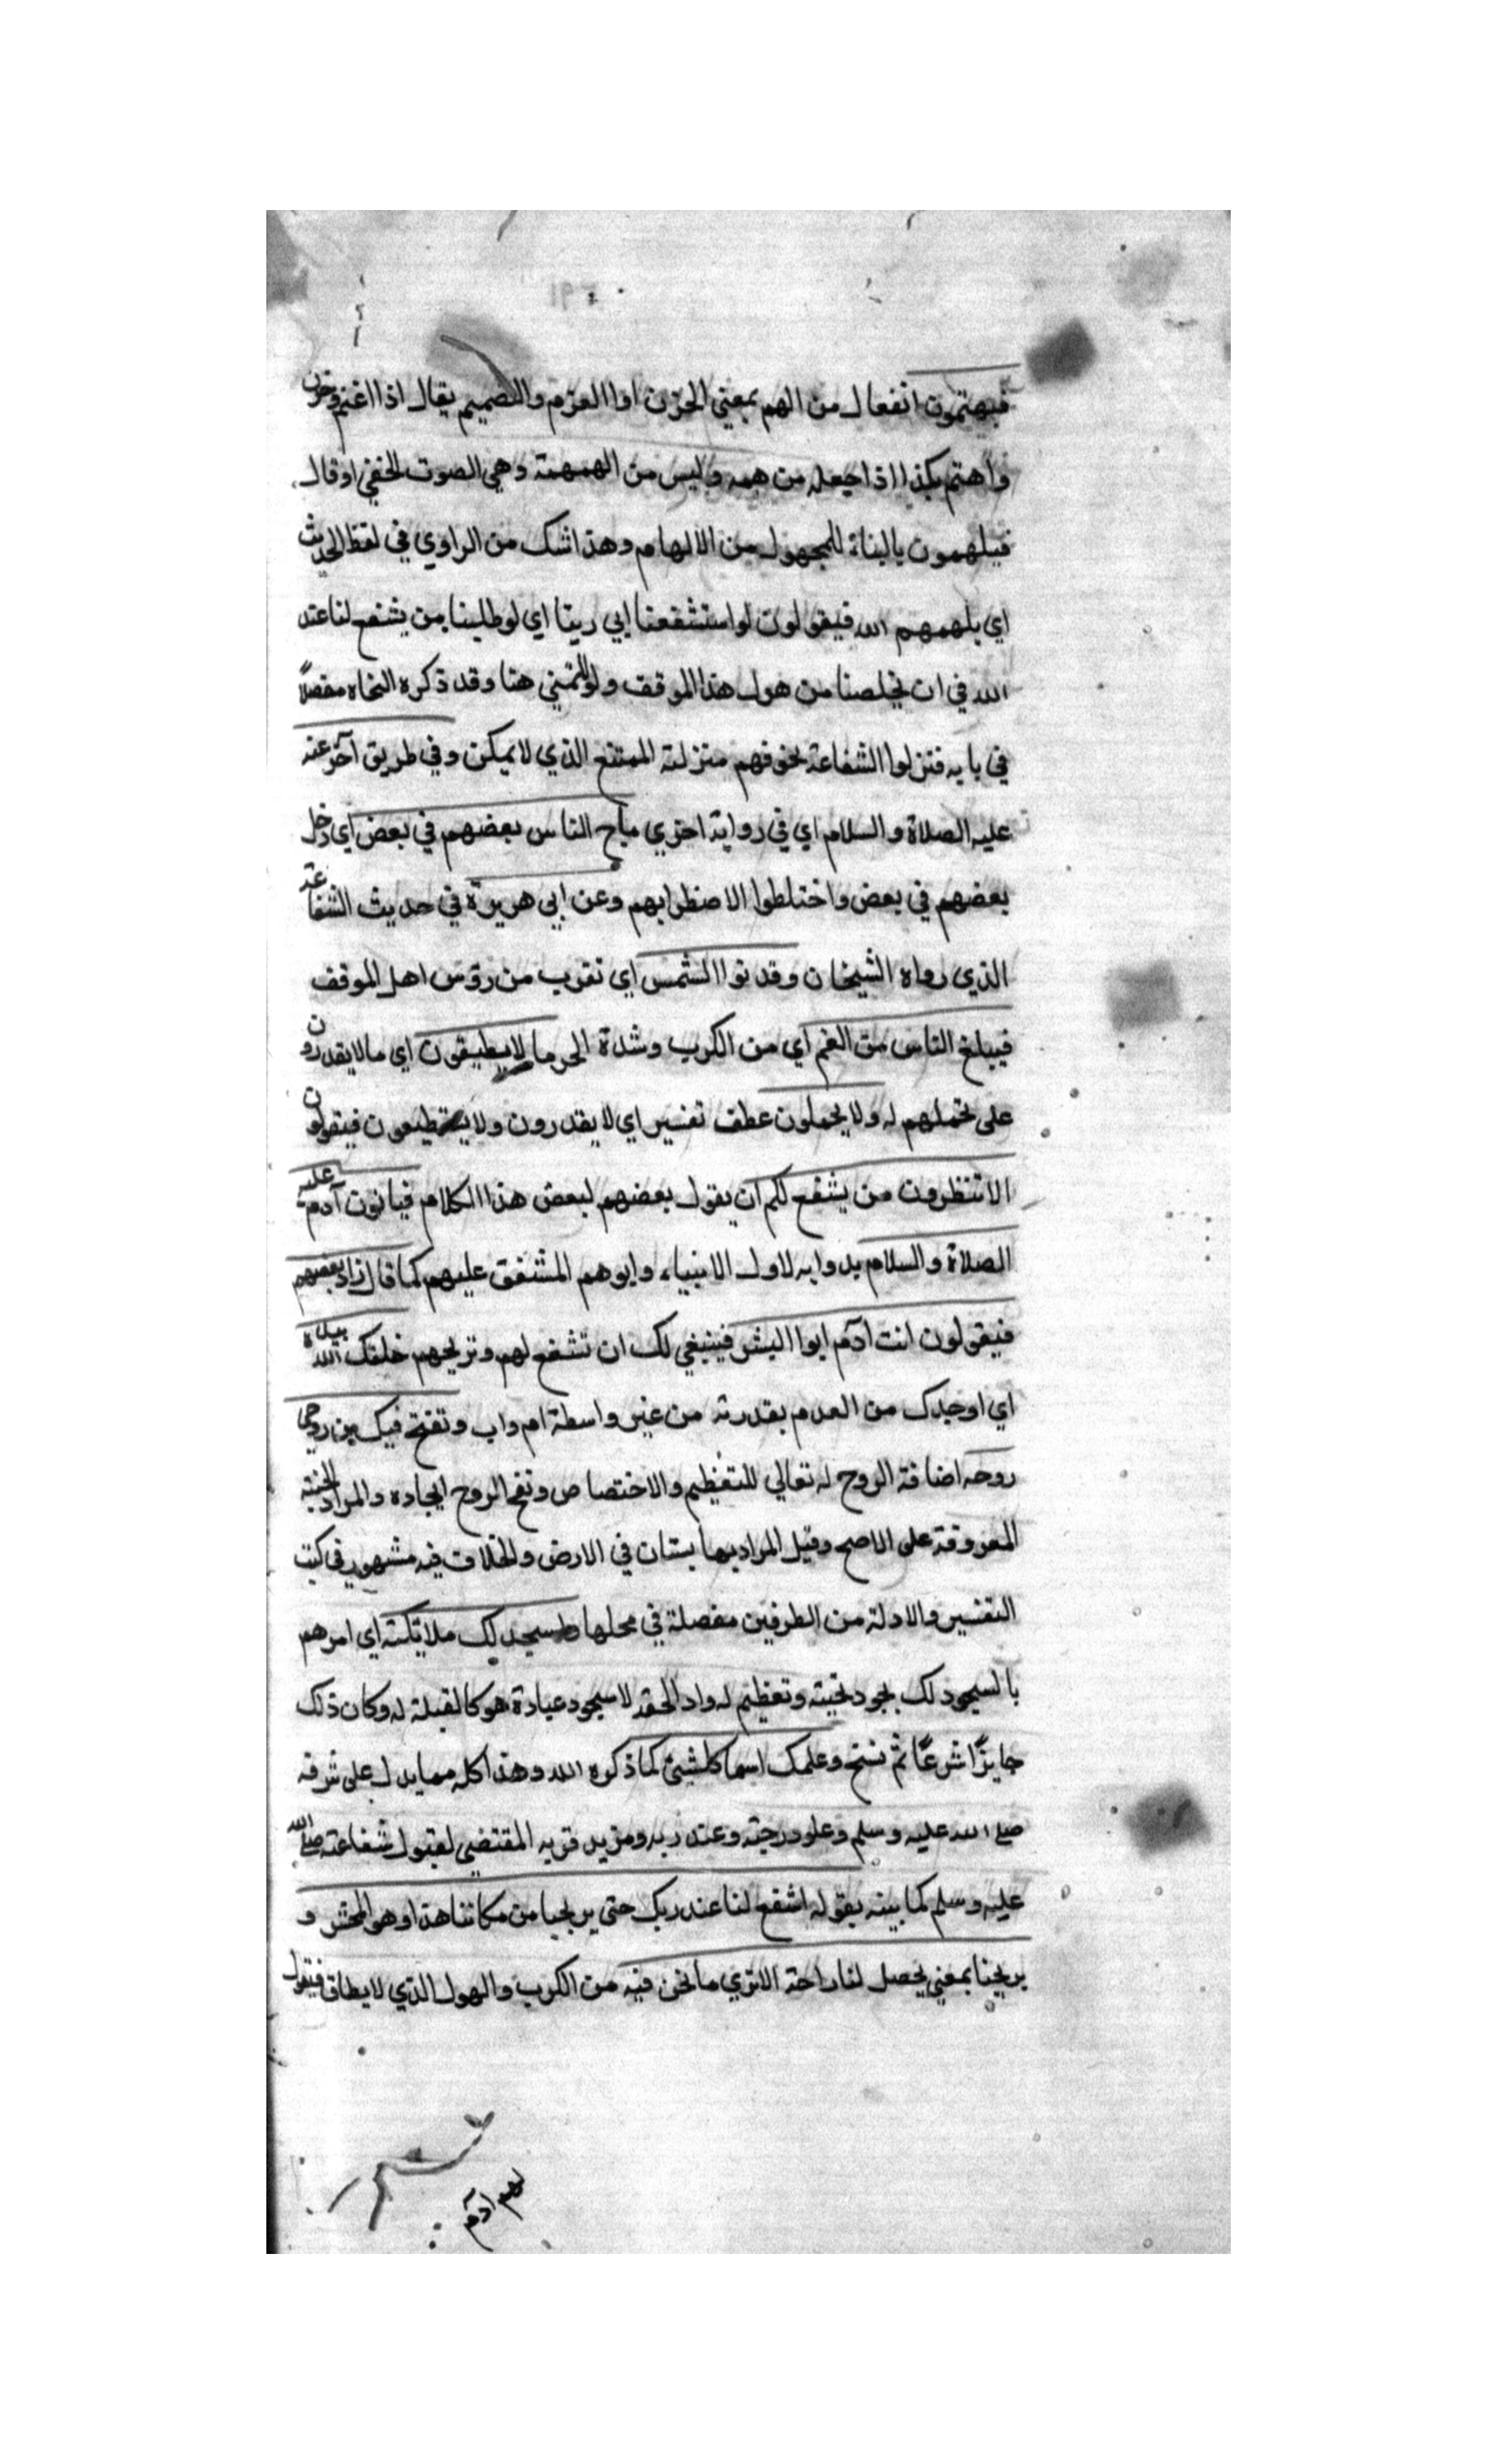 فيهتمون انفعال من الهم بمعني الحزن اوالعزم والتصميم يقال اذا اغتم وحزن
واهتم بكذا اذا جعله من همه وليس من الهمهمة وهي الصوت الخفي اوقال
فيلهمون بالبناة للمجهول من الالهام وهذا شك من الراوي في لفظ الحديث
اي يلهمهم الله فيقولون لواستشفعنا الي ربنا اي لوطلبنا من يشفع لنا عند
الله في ان يخلصنا من هول هذا الموقف ولوللتمني هنا وقد ذكره النحاه مفصلاً
في بابه فنزلوا الشفاعة لخوفهم منزلة الممتنع الذي لايمكن وفي طريق آخر عنه
عليه الصلاة والسلام اي في رواية اخري ماج الناس بعضهم في بعض اي دخل
بعضهم في بعض واختلطوا الاضطرابهم وعن ابي هريرة في حديث الشفاعة
الذي رواه الشيخان وقدنوا الشمس اي تقرب من رؤس اهل الموقف
فيبلغ الناس من الغم اي من الكرب وشدة الحر ما لايطيقون اي مالايقدرون
على تحملهم له ولا يحملون عطف تفسير اي لا يقدرون ولا يستطيعون فيقولون
الاتنظرون من يشفع لكم ان يقول بعضهم لبعض هذا الكلام فياتون آدم عليه
الصلاة والسلام بدوا به لاول الانبياء وابوهم المشفق عليهم كما قال زاد بعضهم
فيقولون انت آدم ابوا البشر فينبغي لك ان تشفع لهم وتريحهم خلقك الله بيده
اي اوجدك من العدم بقدرته من غير واسطة ام واب ونفخ فيك من روحي
روحه اضافة الروح له تعالي للتعظيم والاختصاص ونفخ الروح ايجاده والمراد الجنة
المعروفة على الاصح وقيل المراد بها بستان في الارض والخلاف فيه مشهور في كتب
التفسير والادلة من الطرفين مفصلة في محلها واسجد لك ملائكته اي امرهم
بالسجود لك بجود تحية وتعظيم له واد الحقه لاسجود عبادة هو كالقبلة له وكان ذلك
جايزًا شرعًا ثم نسخ وعلمك اسما كلشئ كما ذكره الله وهذا كله مما يدل على شرفه
صلى الله عليه وسلم وعلو درجته وعند ربه ومزيد قربه المقتضي لقبول شفاعته صلى الله
عليه وسلم كما بينه بقوله اشفع لنا عند ربك حتى يريحنا من مكاننا هذا وهو المحشر و
يريحنا بمعني يحصل لنا راحة الاتري مانحن فيه من الكرب والهول الذي لايطاق فيقول
لهم آدم